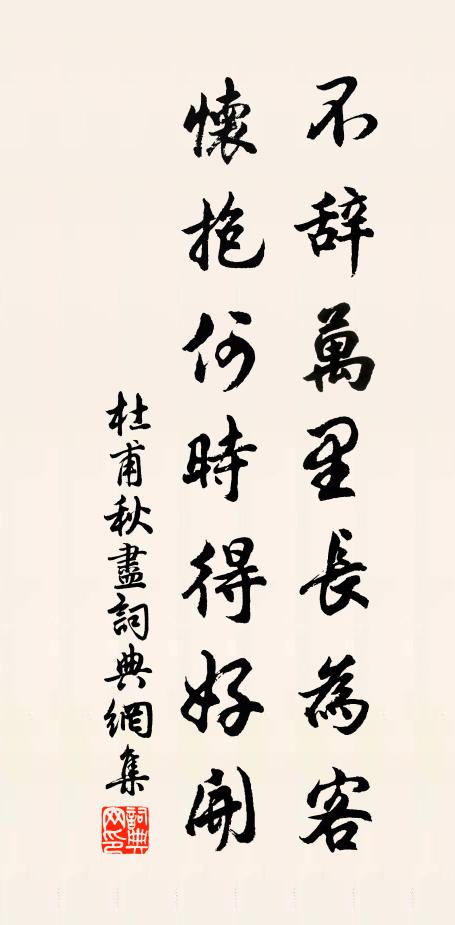 不辞萬里長為客
懷抱何時得好開
杜甫秋盡詞典網集
詞典
网印